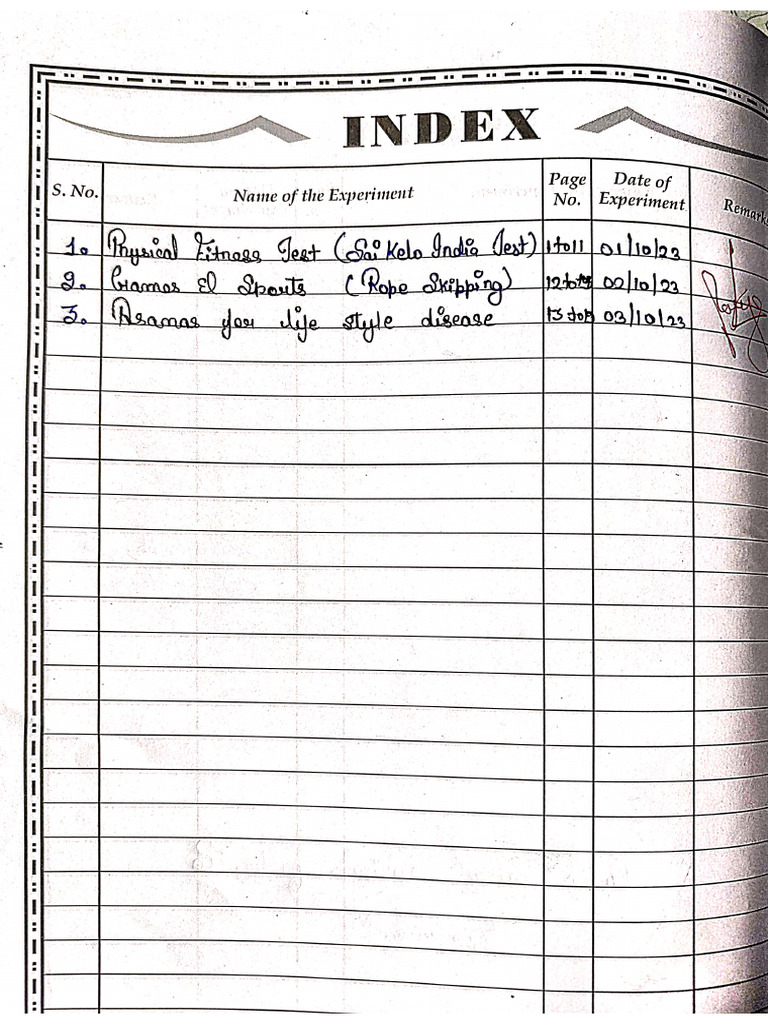 INDEX
S. No. Name of the Experiment Page No. Date of Experiment Remarks
1. Physical Fitness Test (Sai Kelo India Test) 1 to 11 01/10/23
2. Games & Sports (Rope Skipping) 12 to 02/10/23
3. Asanas for life style disease 03/10/23